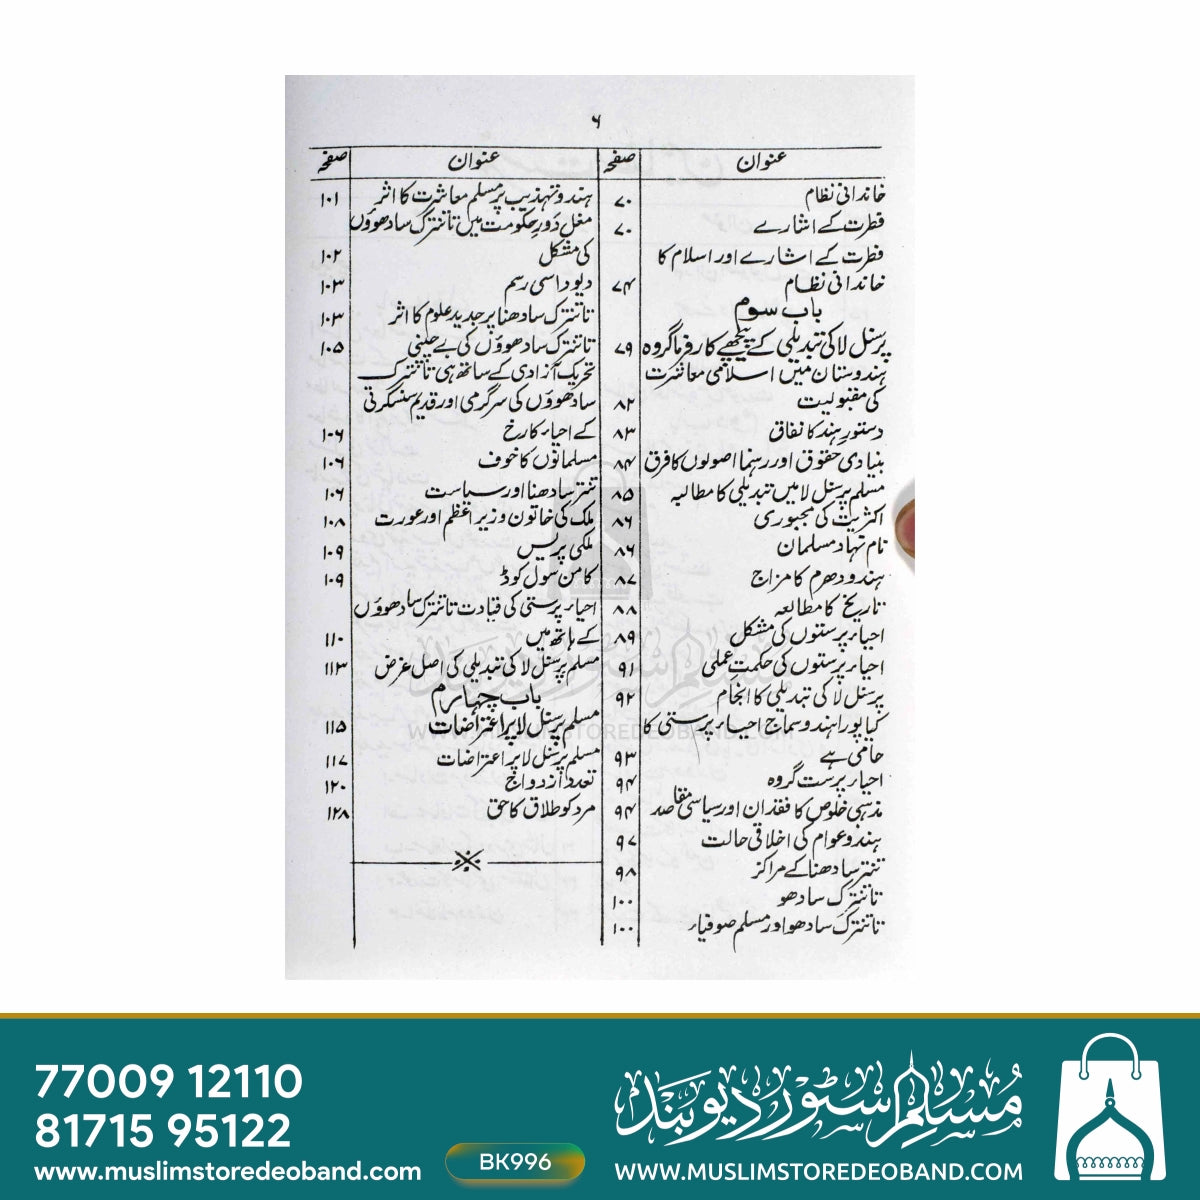 ۶
عنوان صفحہ
خاندانی نظام ۷۰
فطرت کے اشارے ۷۰
فطرت کے اشارے اور اسلام کا
خاندانی نظام ۷۴
باب سوم
پرسنل لا کی تبدیلی کے پیچھے کارفرما گروہ ۷۹
ہندوستان میں اسلامی معاشرت
کی مقبولیت ۸۲
دستور ہند کا نفاق ۸۳
بنیادی حقوق اور رہنما اصولوں کا فرق ۸۴
مسلم پرسنل لا میں تبدیلی کا مطالبہ ۸۵
اکثریت کی مجبوری ۸۶
نام نہاد مسلمان ۸۶
ہندو دھرم کا مزاج ۸۷
تاریخ کا مطالعہ ۸۸
احیاء پرستوں کی مشکل ۸۹
احیاء پرستوں کی حکمت عملی ۹۱
پرسنل لا کی تبدیلی کا انجام ۹۲
کیا پورا ہندو سماج احیاء پرستی کا
حامی ہے ۹۳
احیاء پرست گروہ ۹۴
مذہبی خلوص کا فقدان اور سیاسی مقاصد ۹۴
ہندو عوام کی اخلاقی حالت ۹۷
تنتر سادھنا کے مراکز ۹۸
تانترک سادھو ۱۰۰
تانترک سادھو اور مسلم صوفیاء ۱۰۰
عنوان صفحہ
ہندو تہذیب پر مسلم معاشرت کا اثر ۱۰۱
مغل دور حکومت میں تانترک سادھوؤں
کی مشکل ۱۰۲
دیوداسی رسم ۱۰۳
تانترک سادھنا پر جدید علوم کا اثر ۱۰۳
تانترک سادھوؤں کی بے چینی ۱۰۵
تحریک آزادی کے ساتھ ہی تانترک
سادھوؤں کی سرگرمی اور قدیم سنسکرتی
کے احیاء کا رخ ۱۰۶
مسلمانوں کا خوف ۱۰۶
تنتر سادھنا اور سیاست ۱۰۶
ملک کی خاتون وزیر اعظم اور عورت ۱۰۸
ملکی پریس ۱۰۹
کامن سول کوڈ ۱۰۹
احیاء پرستی کی قیادت تانترک سادھوؤں
کے ہاتھ میں ۱۱۰
مسلم پرسنل لا کی تبدیلی کی اصل غرض ۱۱۳
باب چہارم
مسلم پرسنل لا پر اعتراضات ۱۱۵
مسلم پرسنل لا پر اعتراضات ۱۱۷
تعدد ازدواج ۱۲۰
مرد کو طلاق کا حق ۱۲۸
مسلم سٹور دیوبند
WWW.MUSLIMSTOREDEOBAND.COM
77009 12110
81715 95122
www.muslimstoredeoband.com
BK996
مسلم سٹور دیوبند
WWW.MUSLIMSTOREDEOBAND.COM